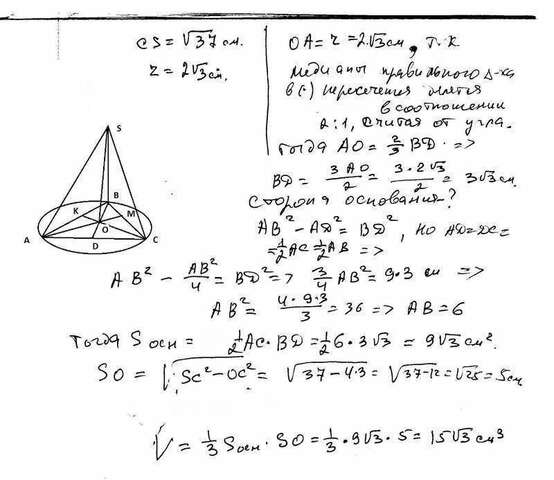 CS = √37 см.
r = 2√3 см.
OA = r = 2√3 см, т.к
медианы правильного Δ-ка
в (·) пересечения делятся
в соотношении
2:1, считая от угла.
Тогда AO = 2/3 BD. =>
BD = 3AO/2 = 3·2√3/2 = 3√3 см.
Сторона основания?
AB² - AD² = BD², но AD = DC =
= 1/2 AC = 1/2 AB =>
AB² - AB²/4 = BD² => 3/4 AB² = 9·3 см =>
AB² = 4·9·3/3 = 36 => AB = 6
Тогда Sосн = 1/2 AC·BD = 1/2 6·3√3 = 9√3 см².
SO = √SC² - OC² = √37-4·3 = √37-12 = √25 = 5см
V = 1/3 Sосн · SO = 1/3 · 9√3 · 5 = 15√3 см³
S
B
K
M
O
A
D
C